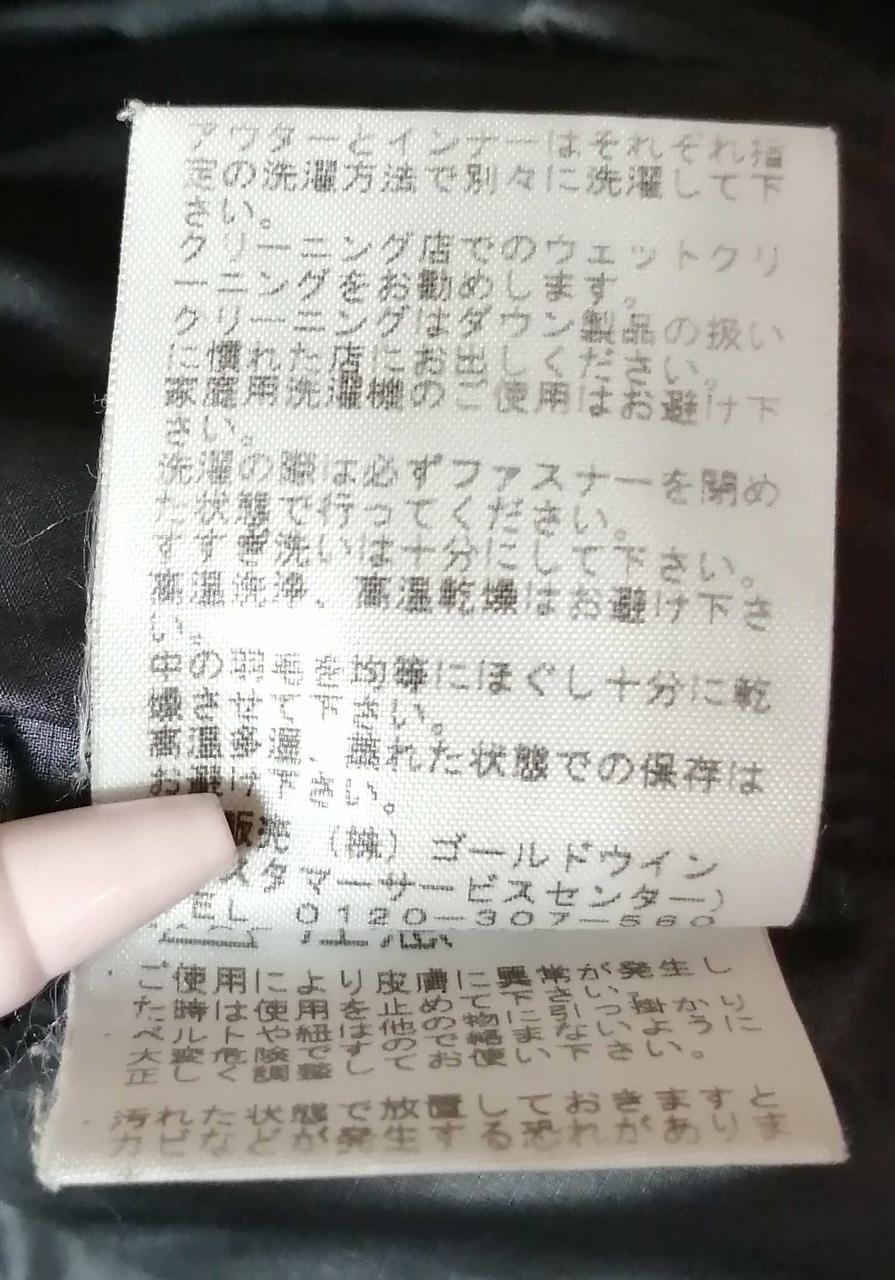 アウターとインナーはそれぞれ指
定の洗濯方法で別々に洗濯して下
さい。
クリーニング店でのウェットクリ
ーニングをお勧めします。
クリーニングはダウン製品の扱い
に慣れた店にお出しください。
家庭用洗濯機のご使用はお避け下
さい。
洗濯の際は必ずファスナーを閉め
た状態で行ってください。
すすぎ洗いは十分にして下さい。
高温洗浄、高温乾燥はお避け下さ
い。
中の羽毛を均等にほぐし十分に乾
燥させて下さい。
高温多湿、濡れた状態での保存は
お避け下さい。
販売 (株) ゴールドウイン
スタマーサービスセンター)
EL 0120-307-560
ご使用により皮膚に異常が発生し
た時は使用を止めて下さい。
ベルトや紐は他の物に引っ掛かり
大変危険ですので絡まないように
正しく調整してお使い下さい。
汚れた状態で放置しておきますと
カビなどが発生する恐れがありま